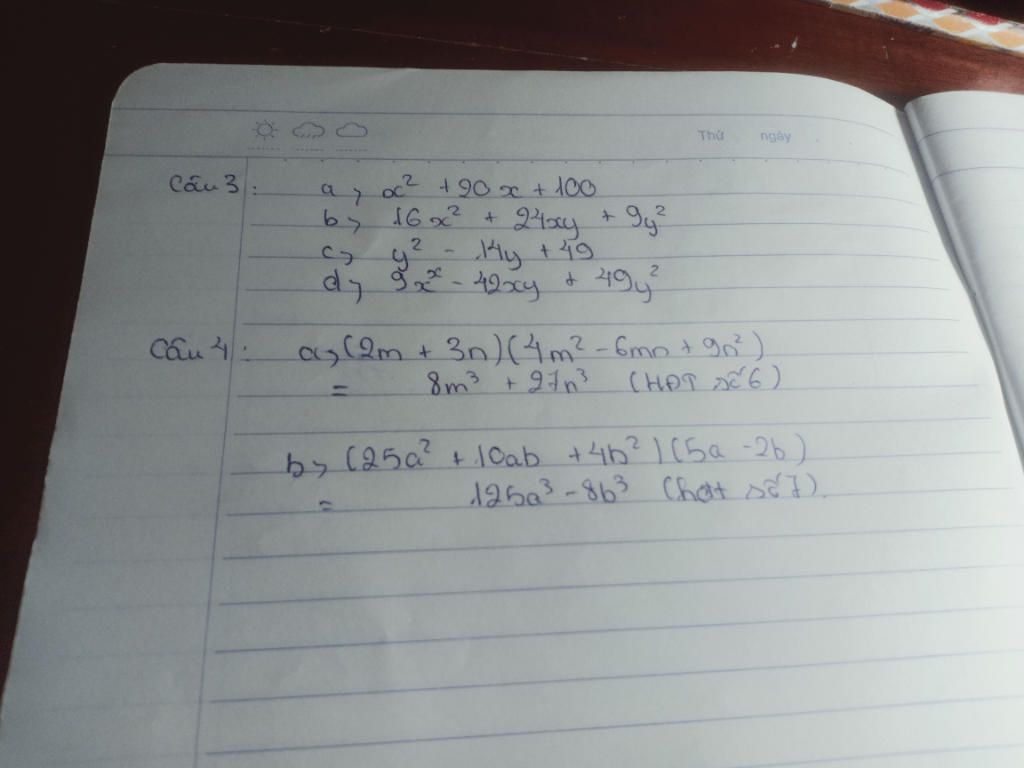 Thứ ngày
Câu 3: a, x² + 20x + 100
b, 16x² + 24xy + 9y²
c, y² - 14y + 49
d, 9xˣ - 42xy + 49y²
Câu 4: a, (2m + 3n)(4m² - 6mn + 9n²)
= 8m³ + 27n³ (HĐT số 6)
b, (25a² + 10ab + 4b²)(5a - 2b)
= 125a³ - 8b³ (hđt số 7).